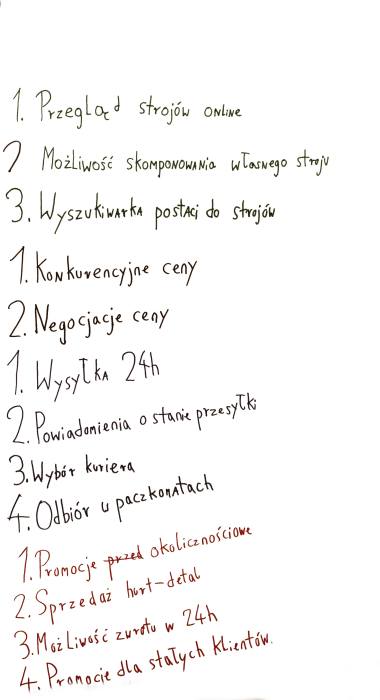 1. Przegląd strojów online
2 Możliwość skomponowania własnego stroju
3. Wyszukiwarka postaci do strojów
1. Konkurencyjne ceny
2. Negocjacje ceny
1. Wysyłka 24h
2. Powiadomienia o stanie przesyłki
3. Wybór kuriera
4. Odbiór u paczkomatach
1. Promocje przed okolicznościowe
2. Sprzedaż hurt-detal
3. Możliwość zwrotu w 24h
4. Promocie dla stałych klientów.